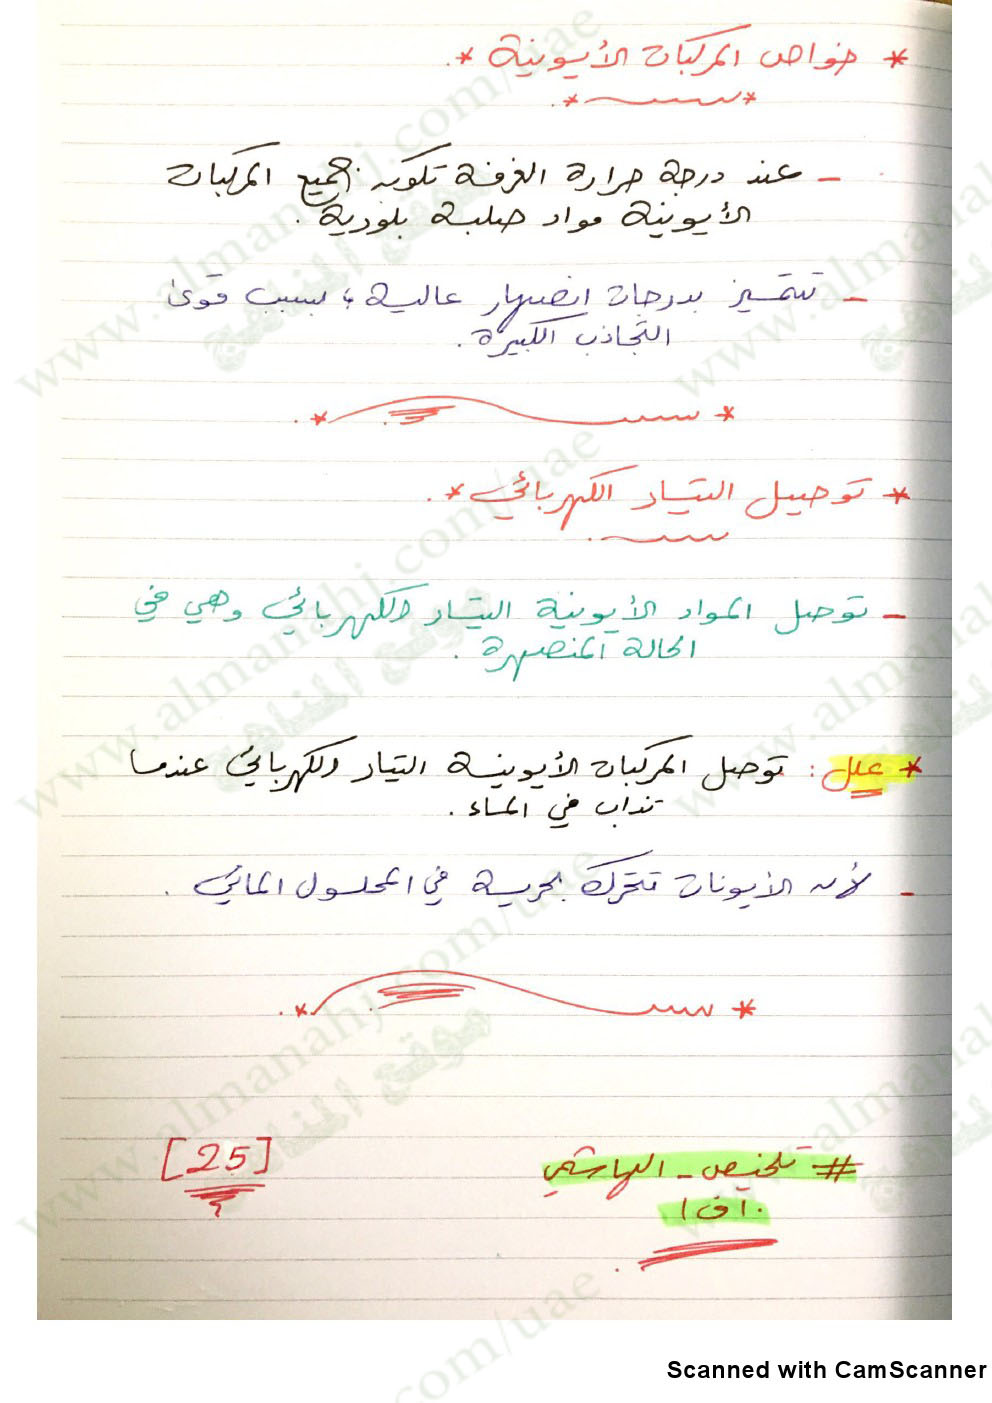 * خواص المركبات الأيونية *.
- عند درجة حرارة الغرفة تكون جميع المركبات
الأيونية مواد صلبة بلورية.
- تتميز بدرجات انصهار عالية ؛ بسبب قوى
التجاذب الكبيرة.
* توصيل التيار الكهربائي *.
- توصل المواد الأيونية التيار الكهربائي وهي في
الحالة المنصهرة.
* علل : توصل المركبات الأيونية التيار الكهربائي عندما
تذاب في الماء.
- لأن الأيونات تتحرك بحرية في المحلول المائي.
# تلخيص - الهاشمي
١٠ ف ١
[25]
www.almanahj.com/uae
موقع المناهج
Scanned with CamScanner